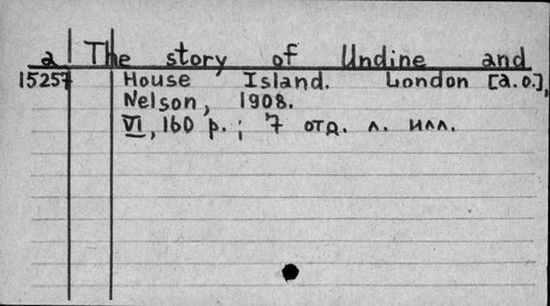 a The story of Undine and
15257 House Island. London [a.o.],
Nelson, 1908.
VI, 160 p.; 7 отд. л. илл.